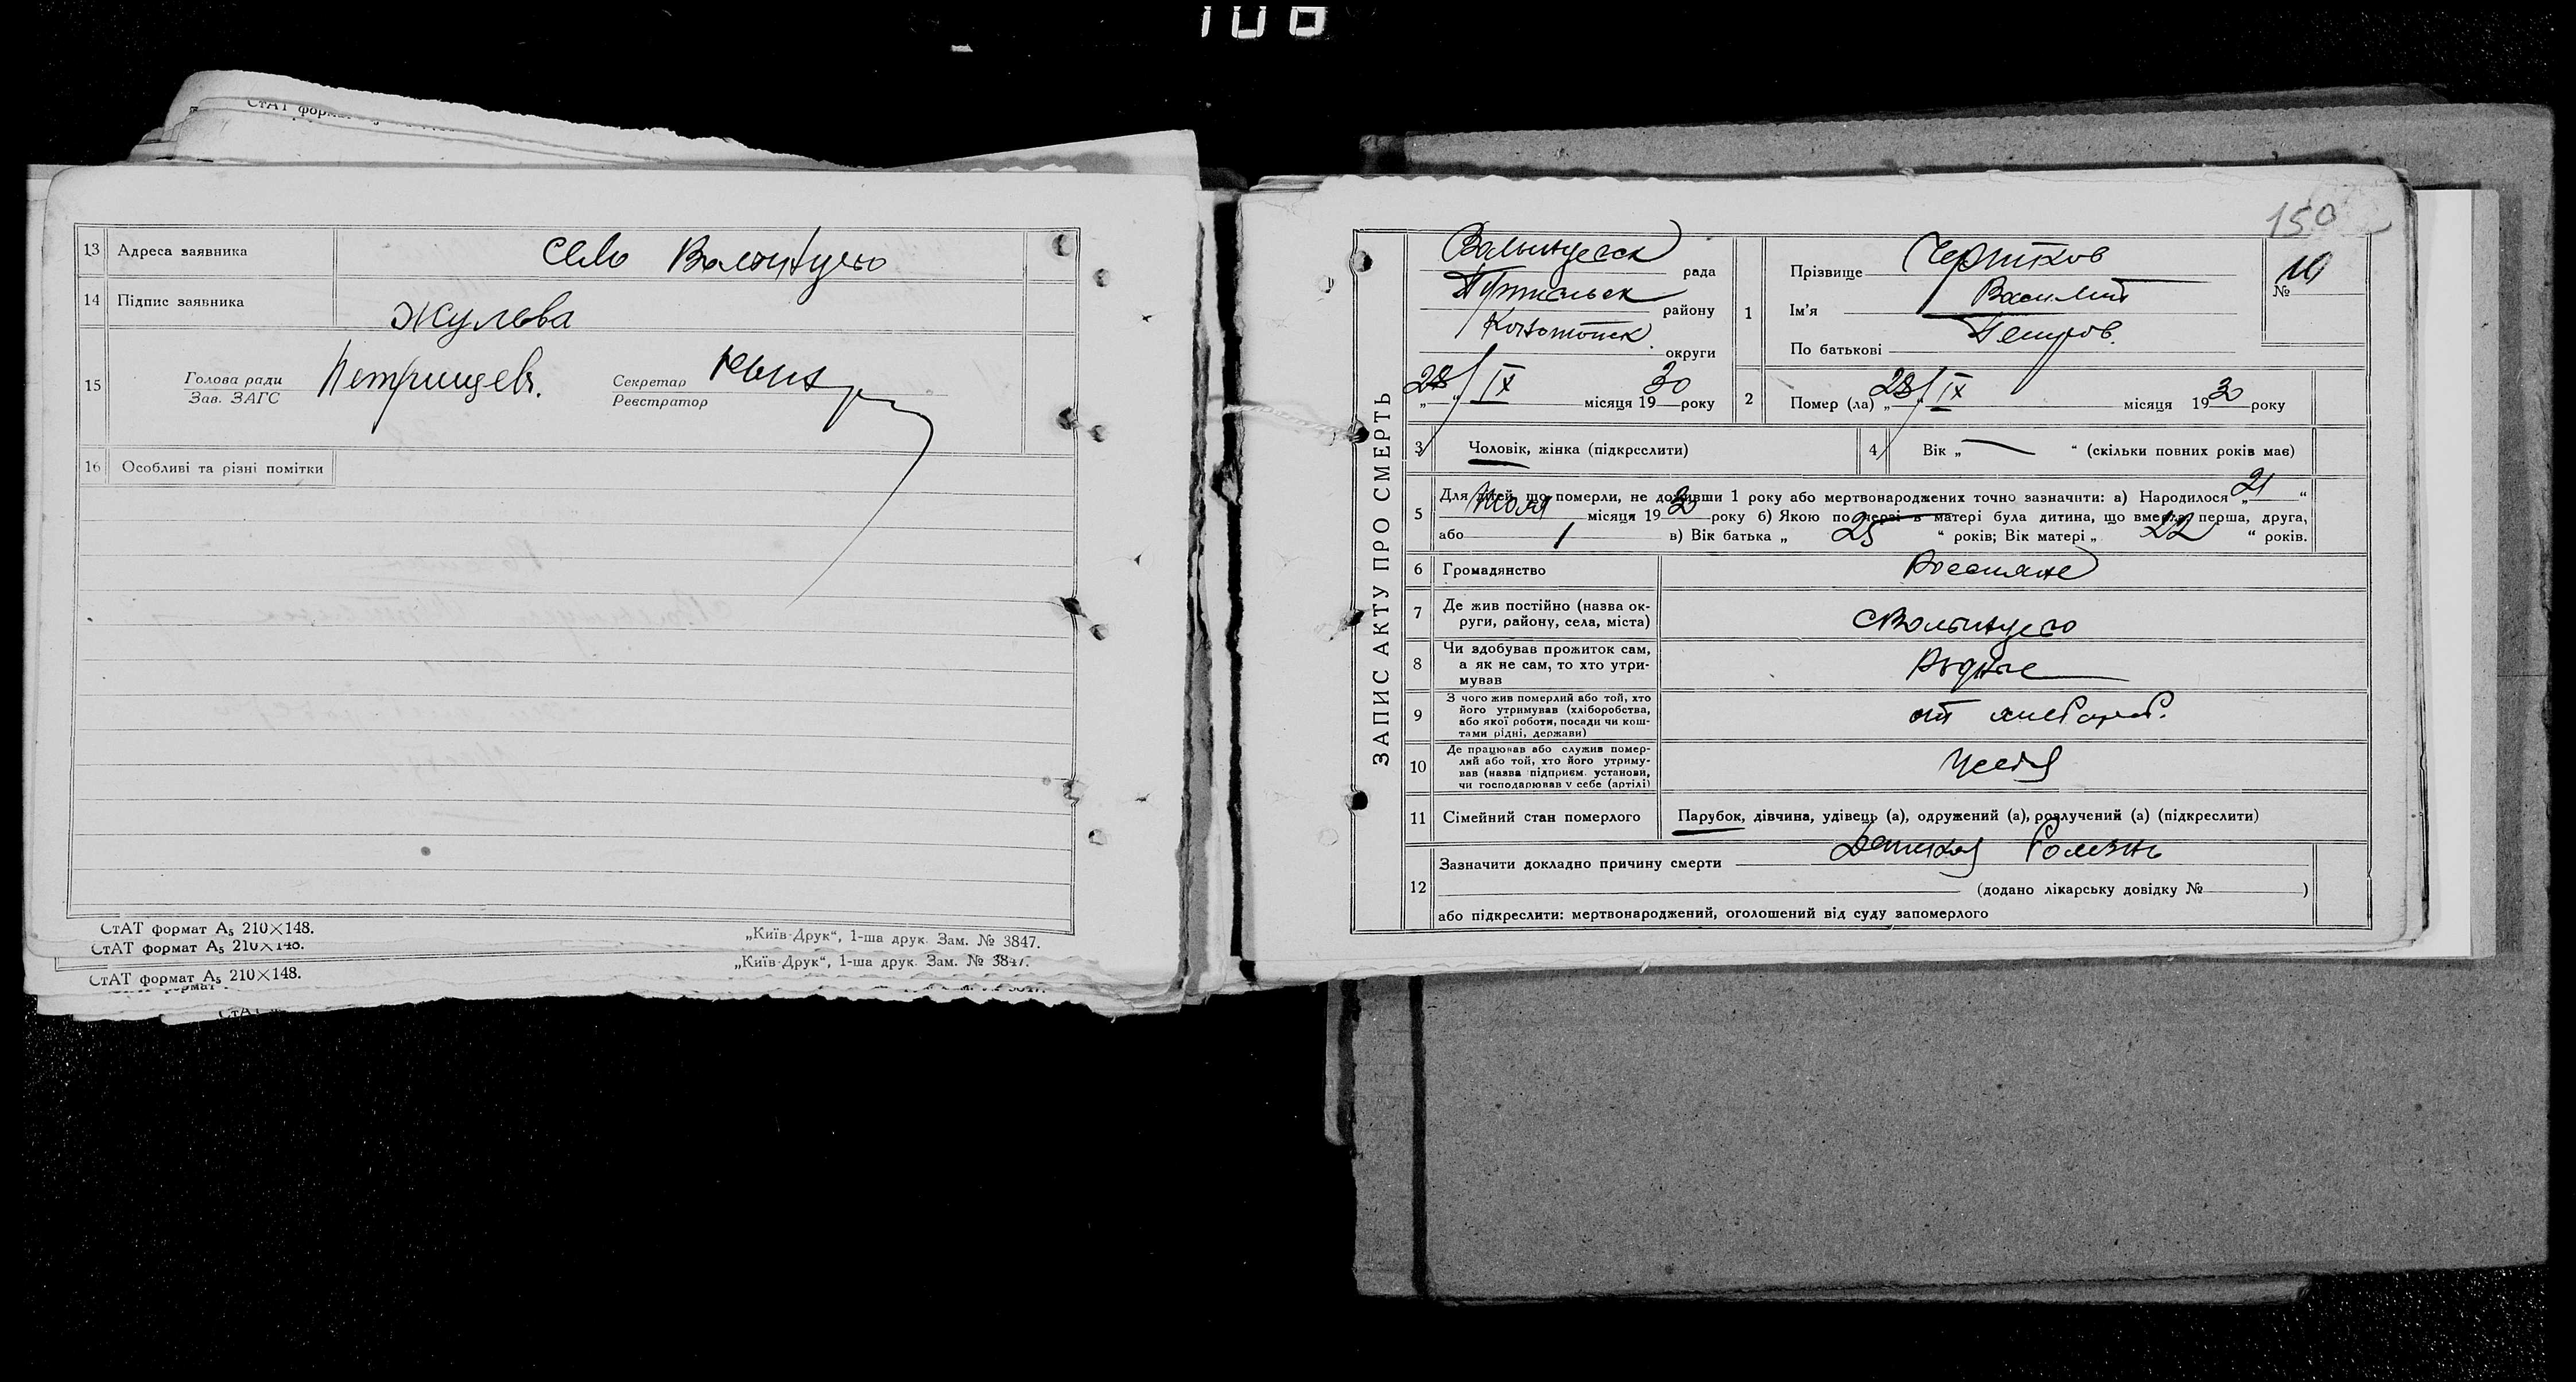 СтАТ форм
13 Адреса заявника село Волынцево
14 Підпис заявника Жулева
15 Голова ради Зав. ЗАГС Петрищев. Секретар Реєстратор
16 Особливі та різні помітки
СтАТ формат А₅ 210×148.
„Київ-Друк“, 1-ша друк. Зам. № 3847.
СтАТ формат А₅ 210×148.
„Київ-Друк“, 1-ша друк. Зам. № 3847.
СтАТ формат А₅ 210×148.
150
ЗАПИС АКТУ ПРО СМЕРТЬ
Волынцевск рада
Путивльск району
Конотопск округи
28/IX місяця 1930 року
1 Прізвище Чертков
Ім'я Василий
По батькові Петров.
№ 10
2 Помер (ла) „28/IX місяця 1930 року
3 Чоловік, жінка (підкреслити)
4 Вік „ — “ (скільки повних років має)
5 Для дітей, що померли, не доживши 1 року або мертвонароджених точно зазначити: а) Народилося „21“
Июля місяця 1930 року б) Якою по черзі в матері була дитина, що вмерла, перша, друга,
або 1 в) Вік батька „ 25 “ років; Вік матері „ 22 “ років.
6 Громадянство Россияне
7 Де жив постійно (назва округи, району, села, міста) с Волынцево
8 Чи здобував прожиток сам, а як не сам, то хто утримував Родные
9 З чого жив померлий або той, хто його утримував (хліборобства, або якої роботи, посади чи коштами рідні, держави) от хлебороб.
10 Де працював або служив померлий або той, хто його утримував (назва підприєм. установи, чи господарював у себе (артілі)
11 Сімейний стан померлого Парубок, дівчина, удівець (а), одружений (а), розлучений (а) (підкреслити)
12 Зазначити докладно причину смерти Детская болезнь
(додано лікарську довідку № )
або підкреслити: мертвонароджений, оголошений від суду запомерлого